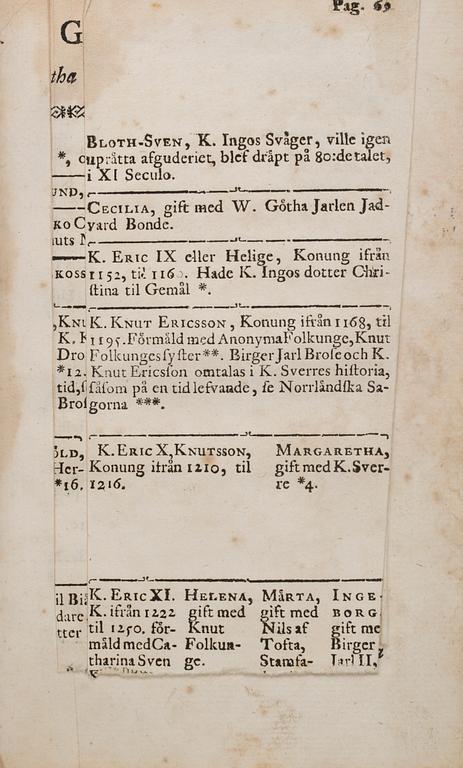 Pag. 69
G
tha
BLOTH-SVEN, K. Ingos Svåger, ville igen
*, c upråtta afguderiet, blef dråpt på 80:de talet,
i XI Seculo.
UND,
CECILIA, gift med W. Götha Jarlen Jad-
KO C vard Bonde.
uts
K. ERIC IX eller Helige, Konung ifrån
KOSS 1152, til 1160. Hade K. Ingos dotter Chri-
stina til Gemål *.
,KNU K. KNUT ERICSSON, Konung ifrån 1168, til
K. 1195. Förmåld med Anonyma Folkunge, Knut
Dro Folkunges syster**. Birger Jarl Brose och K.
*12. Knut Ericsson omtalas i K. Sverres historia,
tid,s såsom på en tid lefvande, se Norrlåndska Sa-
Bros gorna ***.
ÖLD, K. ERIC X, KNUTSSON, MARGARETHA,
Her- Konung ifrån 1210, til gift med K. Sver-
*16. 1216. re *4.
il Bi K. ERIC XI. HELENA, MÅRTA, INGE-
dare K. ifrån 1222 gift med gift med BORG
tter til 1250. för- Knut Nils af gift me
måld med Ca- Folkun- Tofta, Birger
tharina Sven ge. Stamfa- Jarl II,